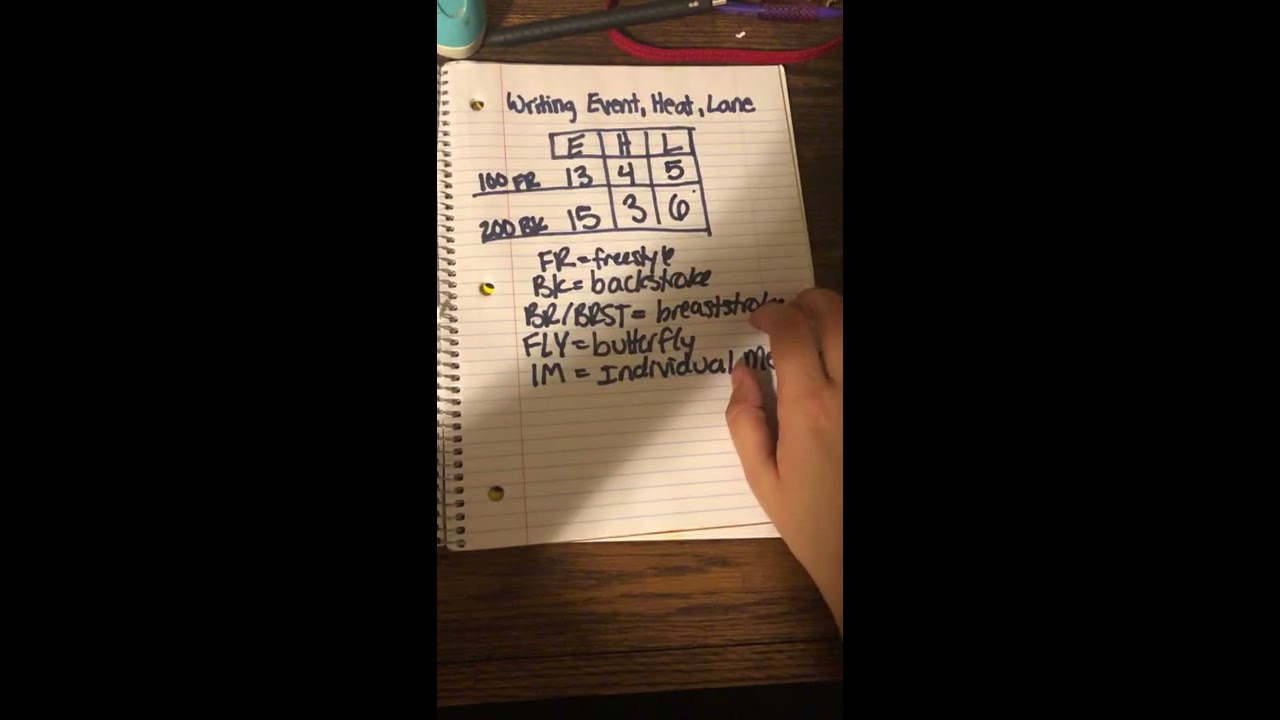 Writing Event, Heat, Lane
E H L
100 FR 13 4 5
200 BK 15 3 6
FR = freestyle
BK = backstroke
BR/BRST = breaststroke
FLY = butterfly
IM = Individual